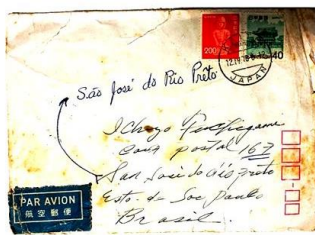 200
40
JAPAN
São José do Rio Preto
Ichozo
Caixa postal 167
San José do Rio Preto
Esto. de Soe Paulo
Brasil.
PAR AVION
航空郵便